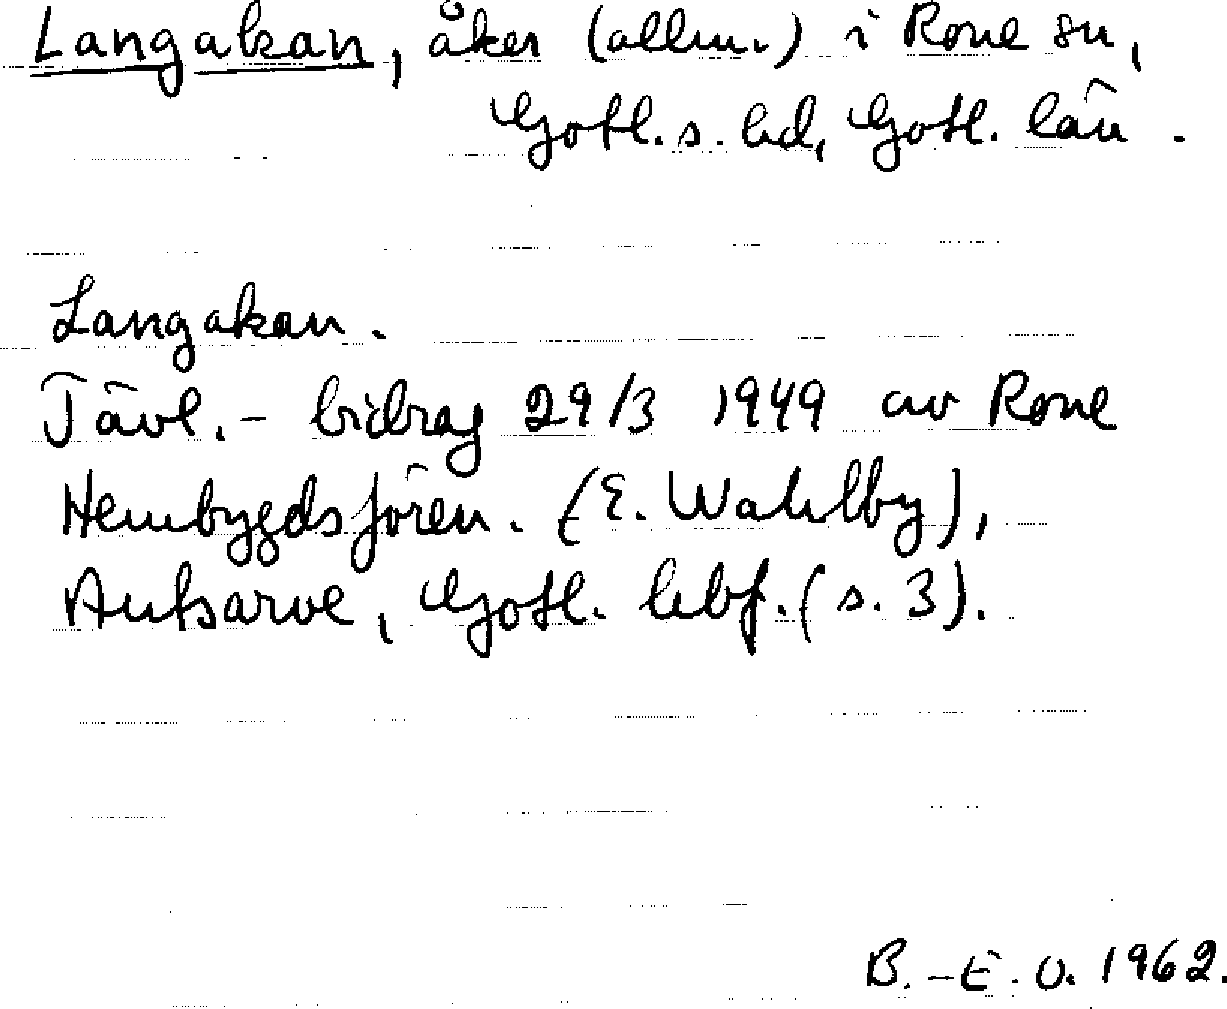 Langakan, åker (allm.) i Rone sn,
Gotl. s. hd, Gotl. län.
Langakan.
Tävl.- bidrag 29/3 1949 av Rone
Hembygdsfören. (E. Wahlby),
Autsarve, Gotl. lbf. (s. 3).
B.-E. O. 1962.